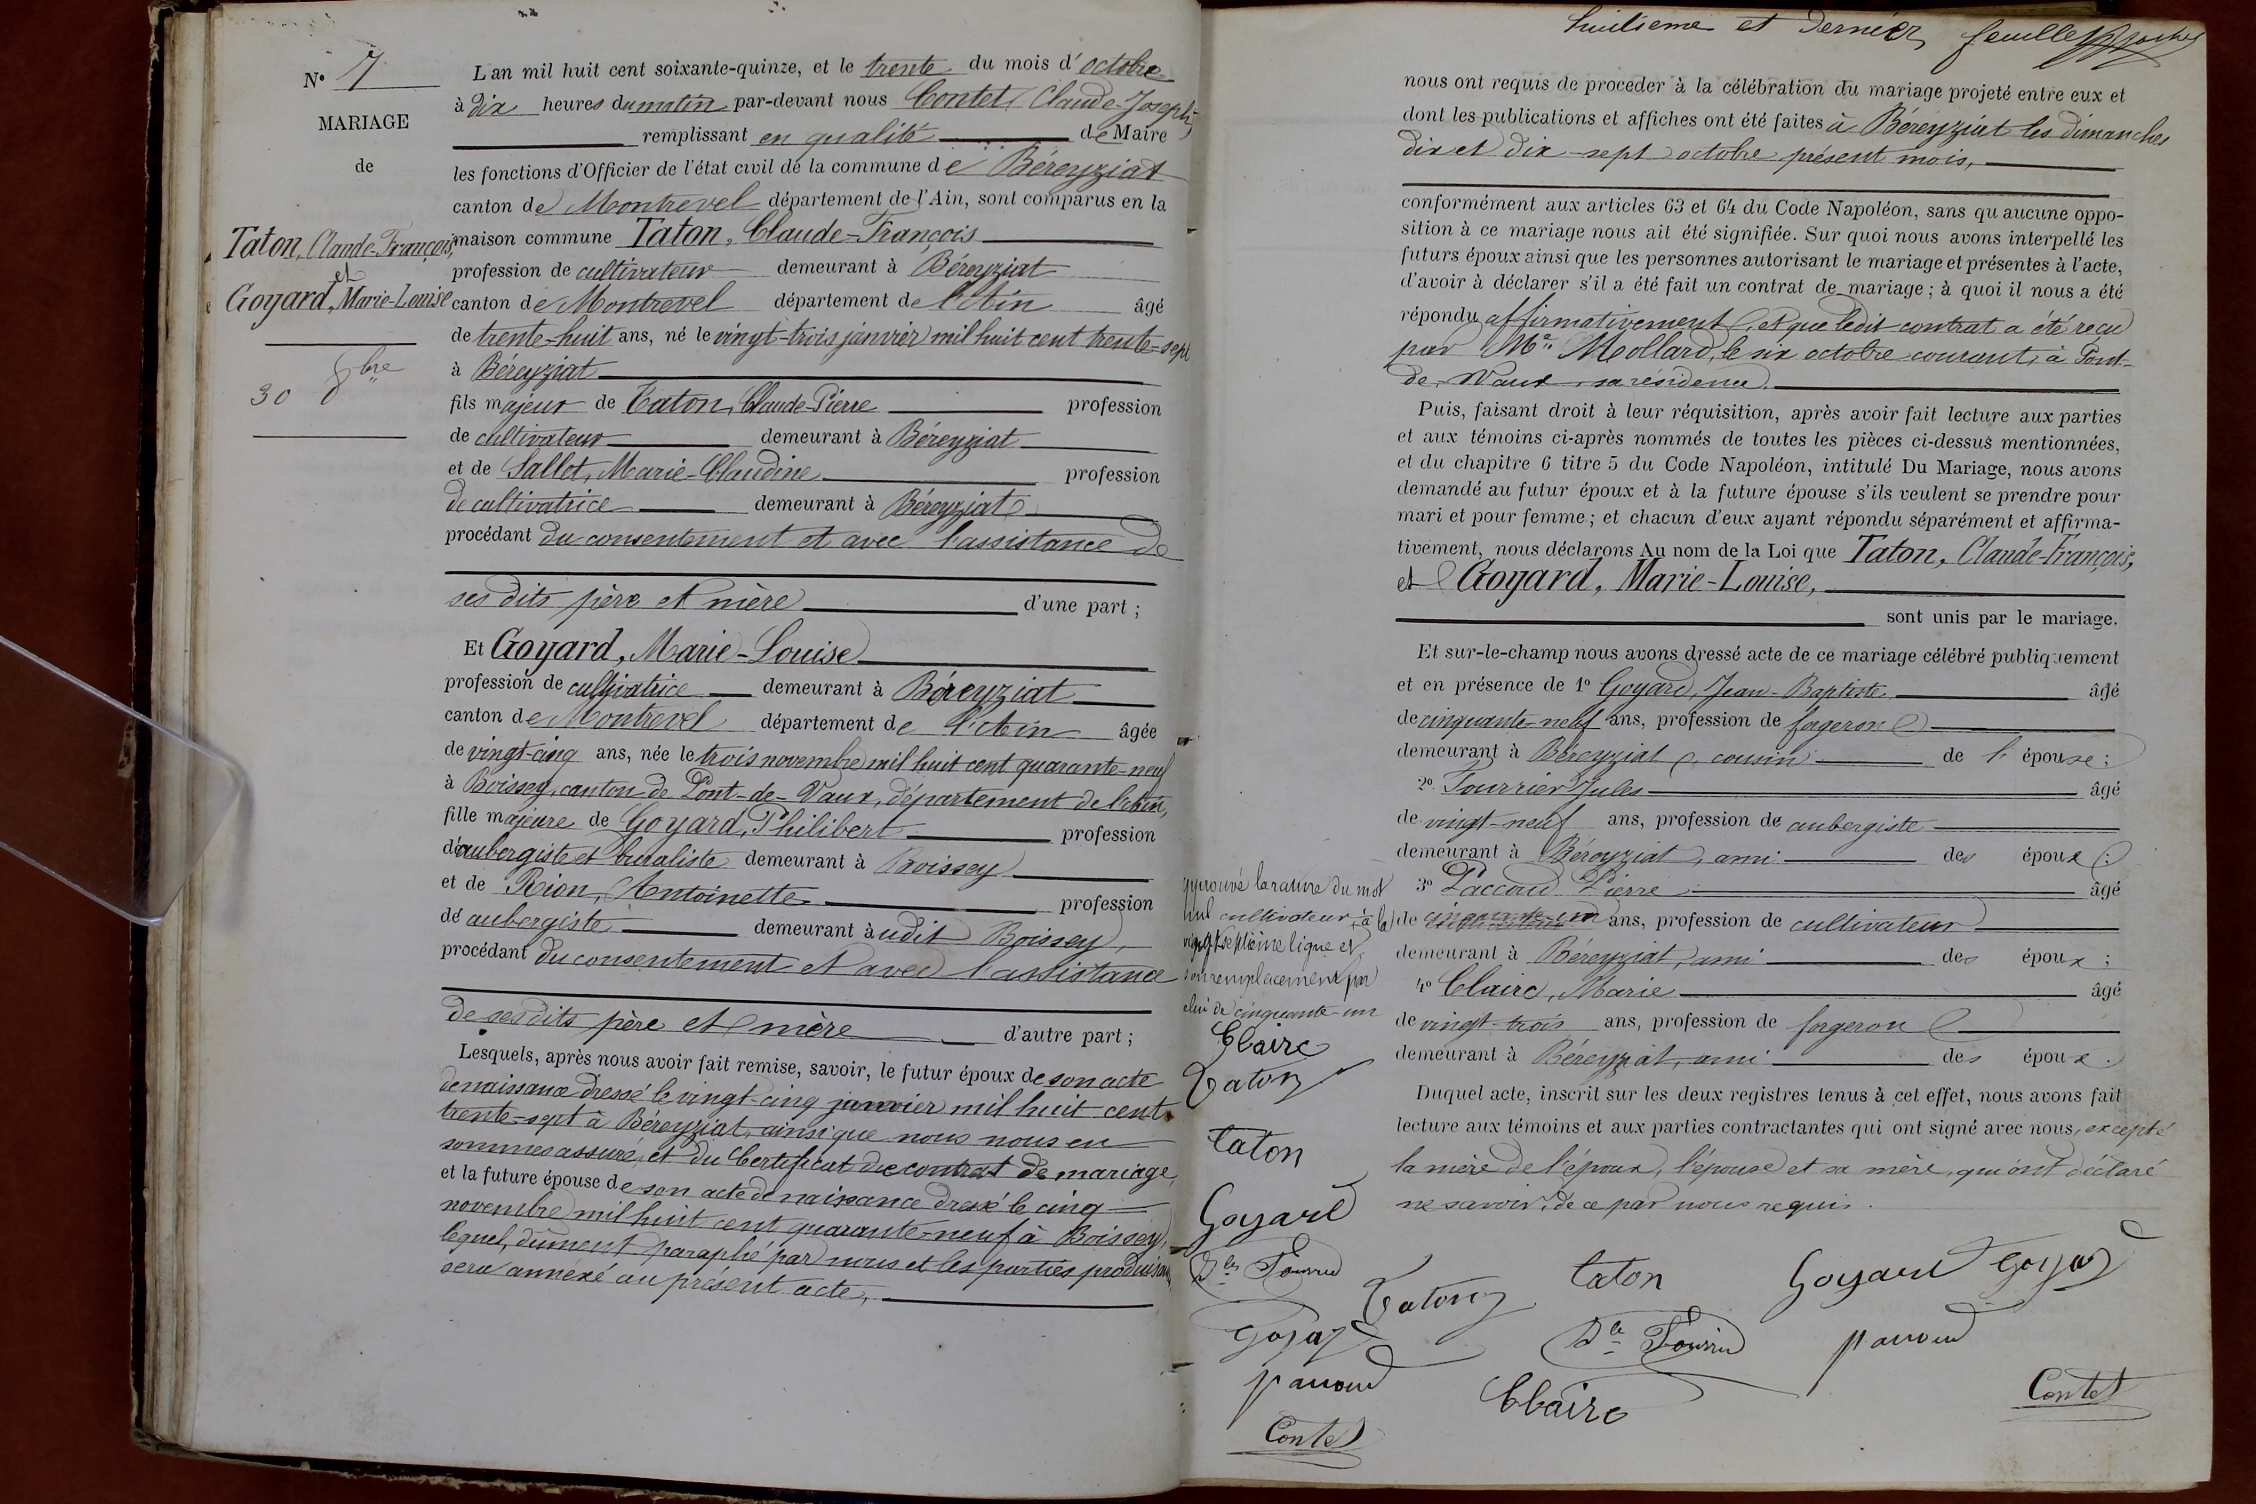 N° 7
MARIAGE
de
Taton, Claude-François,
et
Goyard, Marie-Louise
30 8bre
L'an mil huit cent soixante-quinze, et le trente du mois d'octobre
à dix heures du matin par-devant nous Contet, Claude-Joseph,
remplissant en qualité de Maire
les fonctions d'Officier de l'état civil de la commune de Béreyziat
canton de Montrevel département de l'Ain, sont comparus en la
maison commune Taton, Claude-François
profession de cultivateur demeurant à Béreyziat
canton de Montrevel département de l'Ain âgé
de trente-huit ans, né le vingt-trois janvier mil huit cent trente-sept
à Béreyziat
fils majeur de Taton, Claude-Pierre profession
de cultivateur demeurant à Béreyziat
et de Sallet, Marie-Claudine profession
de cultivatrice demeurant à Béreyziat
procédant du consentement et avec l'assistance de
ses dits père et mère d'une part ;
Et Goyard, Marie-Louise
profession de cultivatrice demeurant à Béreyziat
canton de Montrevel département de l'Ain âgée
de vingt-cinq ans, née le trois novembre mil huit cent quarante-neuf
à Boissey, canton de Pont-de-Vaux, département de l'Ain,
fille majeure de Goyard, Philibert profession
d'aubergiste et buraliste demeurant à Boissey
et de Rion, Antoinette profession
de aubergiste demeurant audit Boissey,
procédant du consentement et avec l'assistance
de ses dits père et mère d'autre part ;
Lesquels, après nous avoir fait remise, savoir, le futur époux de son acte
de naissance dressé le vingt-cinq janvier mil huit cent
trente-sept à Béreyziat, ainsi que nous nous en
sommes assuré, et du Certificat du contrat de mariage,
et la future épouse de son acte de naissance dressé le cinq
novembre mil huit cent quarante-neuf à Boissey,
lequel, dûment paraphé par nous et les parties produisant,
sera annexé au présent acte,
huitième et dernier feuillet
nous ont requis de proceder à la célébration du mariage projeté entre eux et
dont les publications et affiches ont été faites à Béreyziat les dimanches
dix et dix-sept octobre présent mois,
conformément aux articles 63 et 64 du Code Napoléon, sans qu'aucune oppo-
sition à ce mariage nous ait été signifiée. Sur quoi nous avons interpellé les
futurs époux ainsi que les personnes autorisant le mariage et présentes à l'acte,
d'avoir à déclarer s'il a été fait un contrat de mariage ; à quoi il nous a été
répondu affirmativement, et que ledit contrat a été reçu
par Me Mollard, le six octobre courant, à Pont-
de-Vaux, sa résidence.
Puis, faisant droit à leur réquisition, après avoir fait lecture aux parties
et aux témoins ci-après nommés de toutes les pièces ci-dessus mentionnées,
et du chapitre 6 titre 5 du Code Napoléon, intitulé Du Mariage, nous avons
demandé au futur époux et à la future épouse s'ils veulent se prendre pour
mari et pour femme ; et chacun d'eux ayant répondu séparément et affirma-
tivement, nous déclarons Au nom de la Loi que Taton, Claude-François,
et Goyard, Marie-Louise,
sont unis par le mariage.
Et sur-le-champ nous avons dressé acte de ce mariage célébré publiquement
et en présence de 1° Goyard, Jean-Baptiste âgé
de cinquante-neuf ans, profession de forgeron
demeurant à Béreyziat, cousin de l'épouse ;
2° Fourrier Jules âgé
de vingt-neuf ans, profession de aubergiste
demeurant à Béreyziat, ami des époux ;
3° Paccoud Pierre âgé
de cinquante-un ans, profession de cultivateur
demeurant à Béreyziat, ami des époux ;
4° Claire, Marie âgé
de vingt-trois ans, profession de forgeron
demeurant à Béreyziat, ami des époux.
Duquel acte, inscrit sur les deux registres tenus à cet effet, nous avons fait
lecture aux témoins et aux parties contractantes qui ont signé avec nous, excepté
la mère de l'époux, l'épouse et sa mère, qui ont déclaré
ne savoir, de ce par nous requis.
approuvé la rature du mot
nul cultivateur à la
vingt-septième ligne et
son remplacement par
celui de cinquante-un
Claire
Taton
Taton
Goyard
Goyard
Paccoud
Contet
Taton
Taton
Goyard Goyard
Paccoud
Claire
Contet